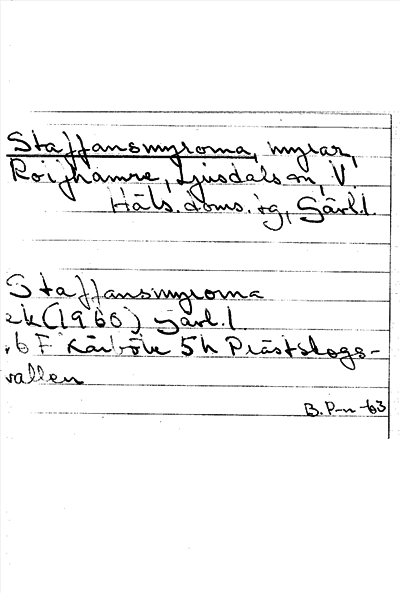 Staffansmyrorna, myrar,
Ljusdals sn, V.
Häls. doms. sg, Gävl.l.
Staffansmyrorna
ek (1960) Gävl.l.
6 F Kårböle 5h Prästskogs-
vallen
B. P-n -63